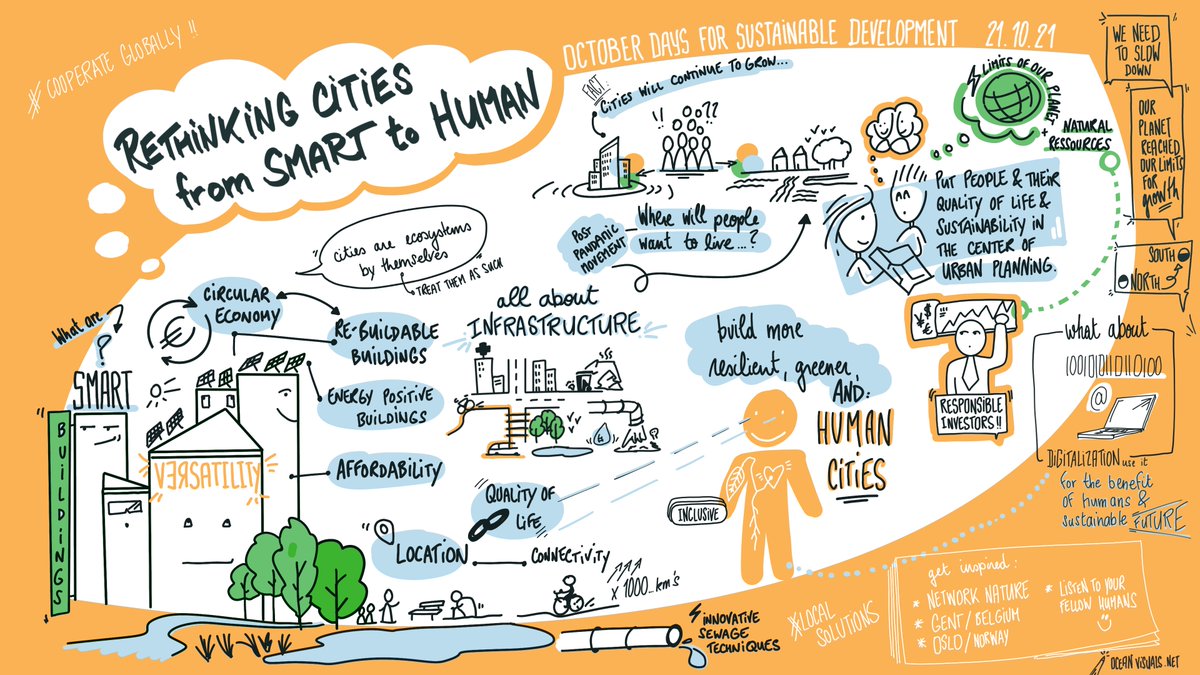 # COOPERATE GLOBALLY !!
OCTOBER DAYS FOR SUSTAINABLE DEVELOPMENT 21.10.21
RETHINKING CITIES
from SMART to HUMAN
FACT:
CITIES WILL CONTINUE TO GROW...
??
LIMITS OF OUR PLANET
+ NATURAL
RESSOURCES
WE NEED
TO SLOW
DOWN
OUR
PLANET
REACHED
OUR LIMITS
FOR
growth
SOUTH
NORTH
PUT PEOPLE & THEIR
QUALITY OF LIFE &
SUSTAINABILITY IN
THE CENTER OF
URBAN PLANNING.
POST
PANDANIC
MOVEMENT
Where will people
want to live...?
"cities are ecosystems
by themselves"
TREAT THEM AS SUCH
CIRCULAR
ECONOMY
€
What are
?
SMART
BUILDINGS
RE-BUILDABLE
BUILDINGS
ENERGY POSITIVE
BUILDINGS
AFFORDABILITY
VERSATILITY
all about
INFRASTRUCTURE
build more
resilient, greener,
AND:
HUMAN
CITIES
INCLUSIVE
QUALITY OF
LIFE
LOCATION
CONNECTIVITY
x 1000...km's
RESPONSIBLE
INVESTORS!!
what about
@
DIGITALIZATION use it
for the benefit
of humans &
sustainable FUTURE
INNOVATIVE
SEWAGE
TECHNIQUES
#LOCAL
SOLUTIONS
get inspired:
* NETWORK NATURE
* GENT/BELGIUM
* OSLO/NORWAY
* LISTEN TO YOUR
FELLOW HUMANS
OCEAN VISUALS.NET